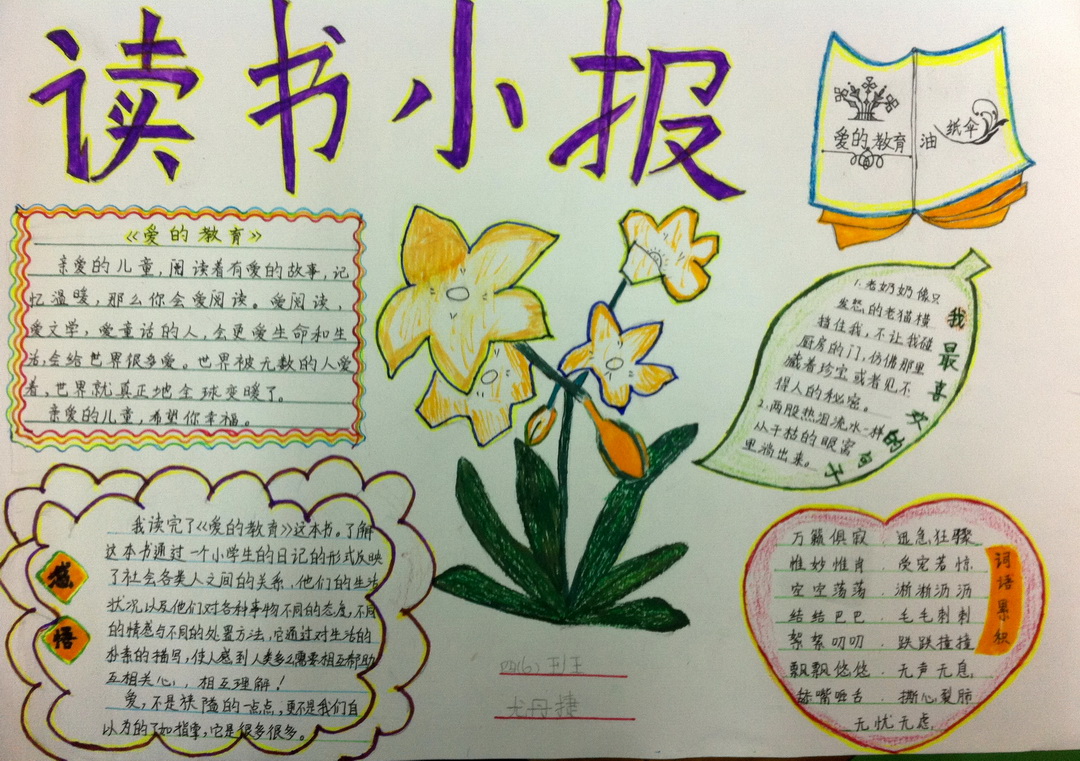 读书小报
爱的教育
油纸伞
《爱的教育》
亲爱的儿童,阅读着有爱的故事,记
忆温暖,那么你会爱阅读。爱阅读,
爱文学,爱童话的人,会更爱生命和生
活,会给世界很多爱。世界被无数的人爱
着,世界就真正地全球变暖了。
亲爱的儿童,希望你幸福。
我最喜欢的句子
1.老奶奶像只
发怒的老猫横
挡住我,不让我碰
厨房的门,仿佛那里
藏着珍宝或者见不
得人的秘密。
2.两股热泪流水一样
从干枯的眼窝
里淌出来。
感悟
我读完了《爱的教育》这本书。了解
这本书通过一个小学生的日记的形式反映
了社会各类人之间的关系,他们的生活
状况以及他们对各种事物不同的态度,不同
的情感与不同的处置方法,它通过对生活的
朴素的描写,使人感到人类多么需要相互帮助
互相关心,相互理解!
爱,不是狭隘的一点点,更不是我们自
以为的了如指掌,它是很多很多。
四(6)班
词语累积
万籁俱寂.迅急狂骤
惟妙惟肖.受宠若惊
空空荡荡.渐渐沥沥
结结巴巴.毛毛刺刺
絮絮叨叨.跌跌撞撞
飘飘悠悠.无声无息.
舔嘴咂舌.撕心裂肺
无忧无虑.